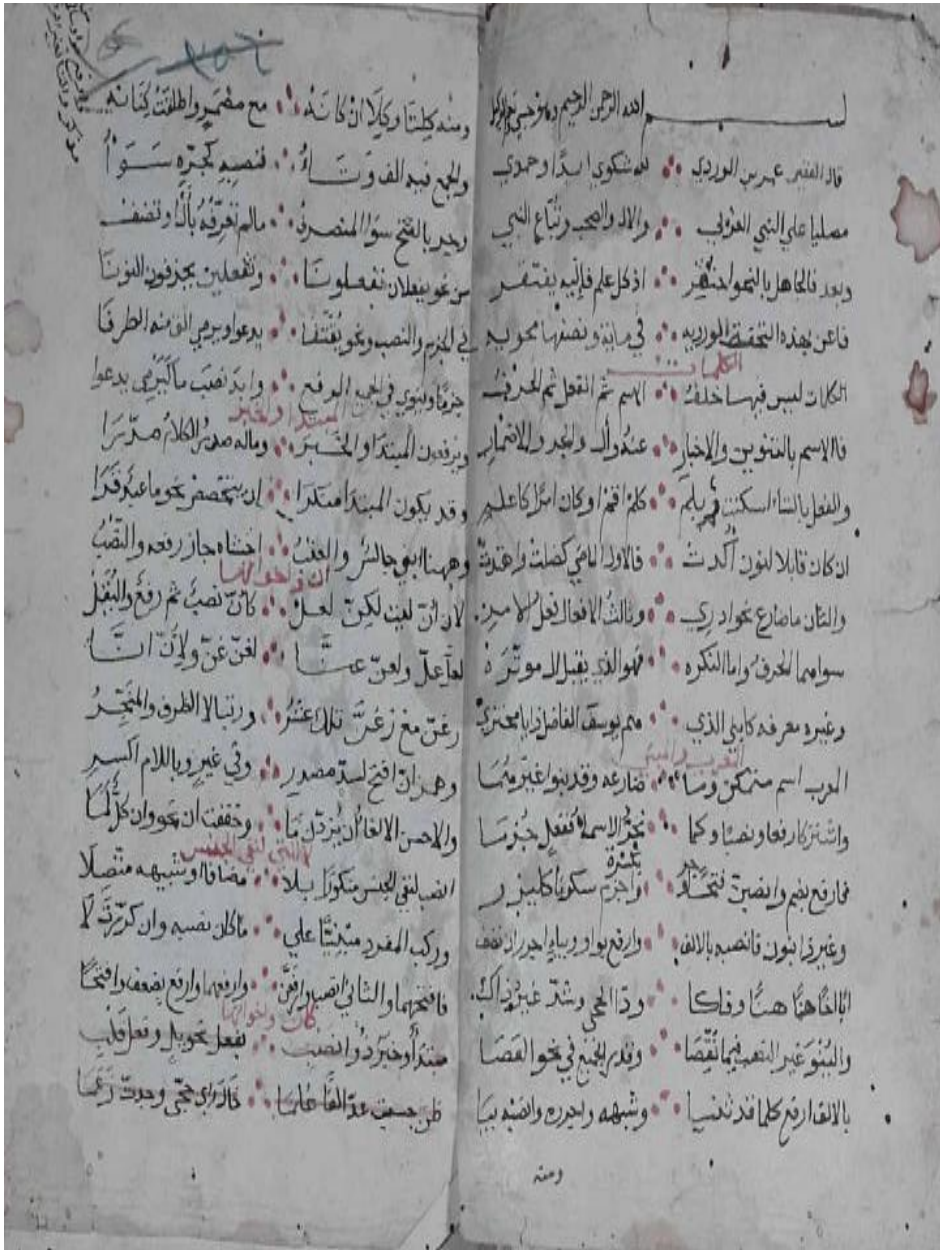 بسم الله الرحمن الرحيم
قال الفقير عمر بن الوردي لله شكري ابدا وحمدي
مصليا علي النبي العربي والال والصحب وتباع النبي
وبعد فالجاهل بالنحو احتقر اذ كل علم فاليه يفتقر
فاعن بهذه التحفة الورديه في ماية ونصفها محويه
الكلمات
الكلمات ليس فيها خلف الاسم ثم الفعل ثم الحرف
فالاسم بالتنوين والاخبار عنه وال والجر والاضمار
والفعل بالتاء اسكنت وبلم كلم اقم او كان امرا كاعلم
ان كان قابلا لنون اكدت فالاول الماضي كصلت وهدت
والثان ما ضارع نحو ادري وثالث الافعال فعل الامر
سواهما الحرف واما النكره فهو الذي يقبل ال موثره
وغيره معرفه كابني الذي هم يوسف الفاضل ذا يا محتذي
المعرب والمبني
المعرب اسم متمكن وما ضارعه وقد بنوا غيرهما
واشتركا رفعا ونصبا وكما نجر الاسم الفعل جزما
فارفع بضم وانصبن فتحا وجر بكسرة واجزم سكونا كليزر
وغير ذا ينون فانصبه بالالف وارفع بواو وبياء اجرر
ابا اخا حما هنا وفاكا وذا
والبنو غير النصب فيما نقصا وقدر الجميع في نحو العصا
بالالف ارفع كلما قد ثنيا وشبهه واجرره وانصبه بيا
ومنه
ومنه كلتا وكلا ان كانه مع مضمر واطلقت كنانه
والجمع فيه الف وتاء فنصبه كجره سواء
وجر بالفتح سوا المنصرف مالم تعرفه بال او تضف
من نحو يفعلان تفعلونا وتفعلين يحذفون النونا
في الجزم والنصب ونحو يقتفا يدعوا ويرمي الق منه الطرفا
جزما وينوي في الجميع الرفع وابد نصب ما كيرمي يدعوا
المبتدا والخبر
ويرفعون المبتدا والخبر وماله صدر الكلام صدرا
وقد يكون المبتدا منكرا ان يتخصص نحو ما عبد قرا
وههنا ابني جالس والخفض اخشاه جاز رفعه والنصب
ان واخواتها
لان ان ليت لكن لعل كان نصب ثم رفع
لعل عل ولعن عنا لغن غن ولان انا
رغن مع رعن تلك عشر ورتبا لا الظرف والمنجر
وهمز ان افتح لسد مصدر وفي غيره وباللام اكسر
والاحسن الالغا ان يزدن ما وخففت ان نحو وان كل لما
لا التي لنفي الجنس
انصب لنفي الجنس منكورا بلا مضافا او شبيهه متصلا
وركب المفرد مبنيا علي ماكان نصبه وان كررت لا
فافتحهما والثاني انصب وارفعن وارفعهما وارفع بضعف وافتحا
كان واخواتها
مبتدأ وخبر ذو انصب بفعل تحويل وفعل قلب
ظن حسبت عد الفا علما خال راي حجي وجدت زعما